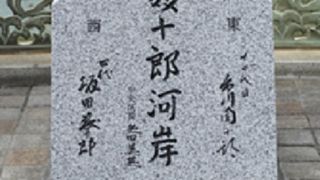 東
十二代目
市川團十郎
十郎河岸
西
四代
坂田藤十郎